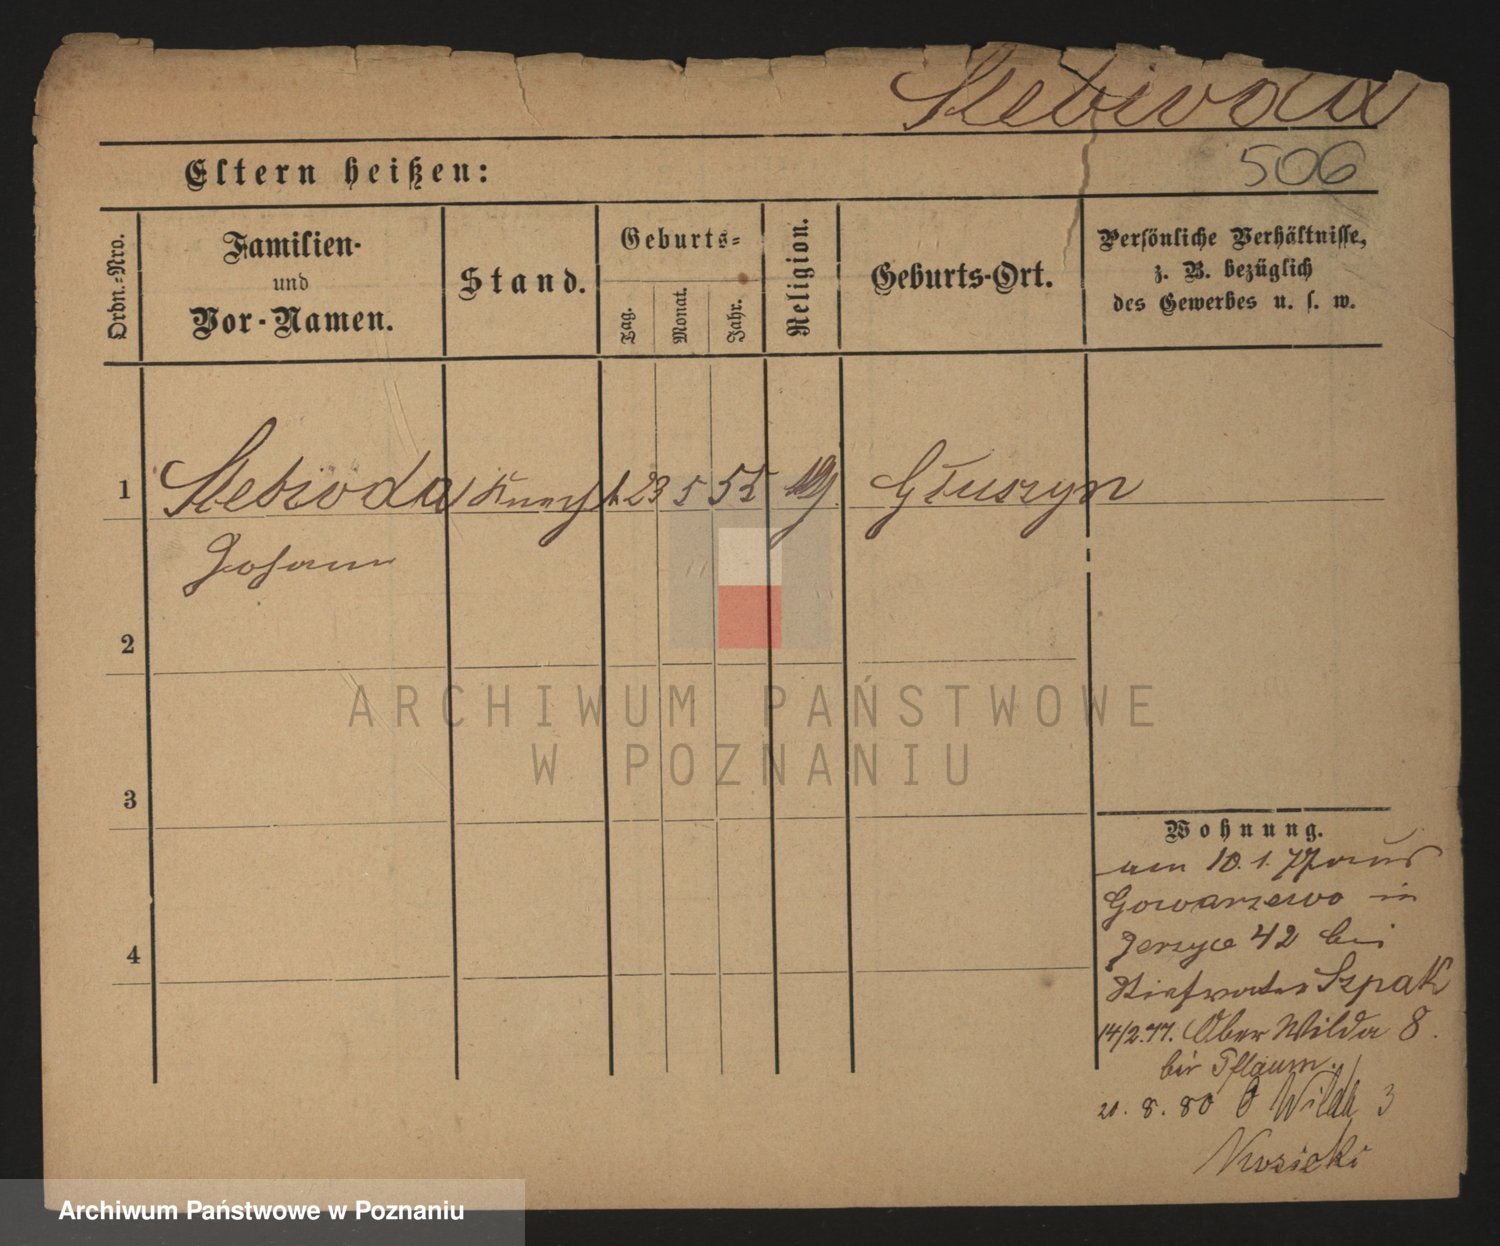 Stebioda
Eltern heißen:
506
Ordn.-Nro.
Familien-
und
Vor-Namen.
Stand.
Geburts-
Tag.
Monat.
Jahr.
Religion.
Geburts-Ort.
Persönliche Verhältnisse,
z. B. bezüglich
des Gewerbes u. s. w.
1 Stebioda Knecht 23 5 55 Głuszyn
Johann
2
3
4
Wohnung.
am 10.1.77 aus
Gowarzewo in
Jerzyce 42 bei
Stiefvater Szpak
14/2.77. Ober Wilda 8.
bei Pflaum.
20.8.80 O Wilda 3
ARCHIWUM PAŃSTWOWE
W POZNANIU
Archiwum Państwowe w Poznaniu